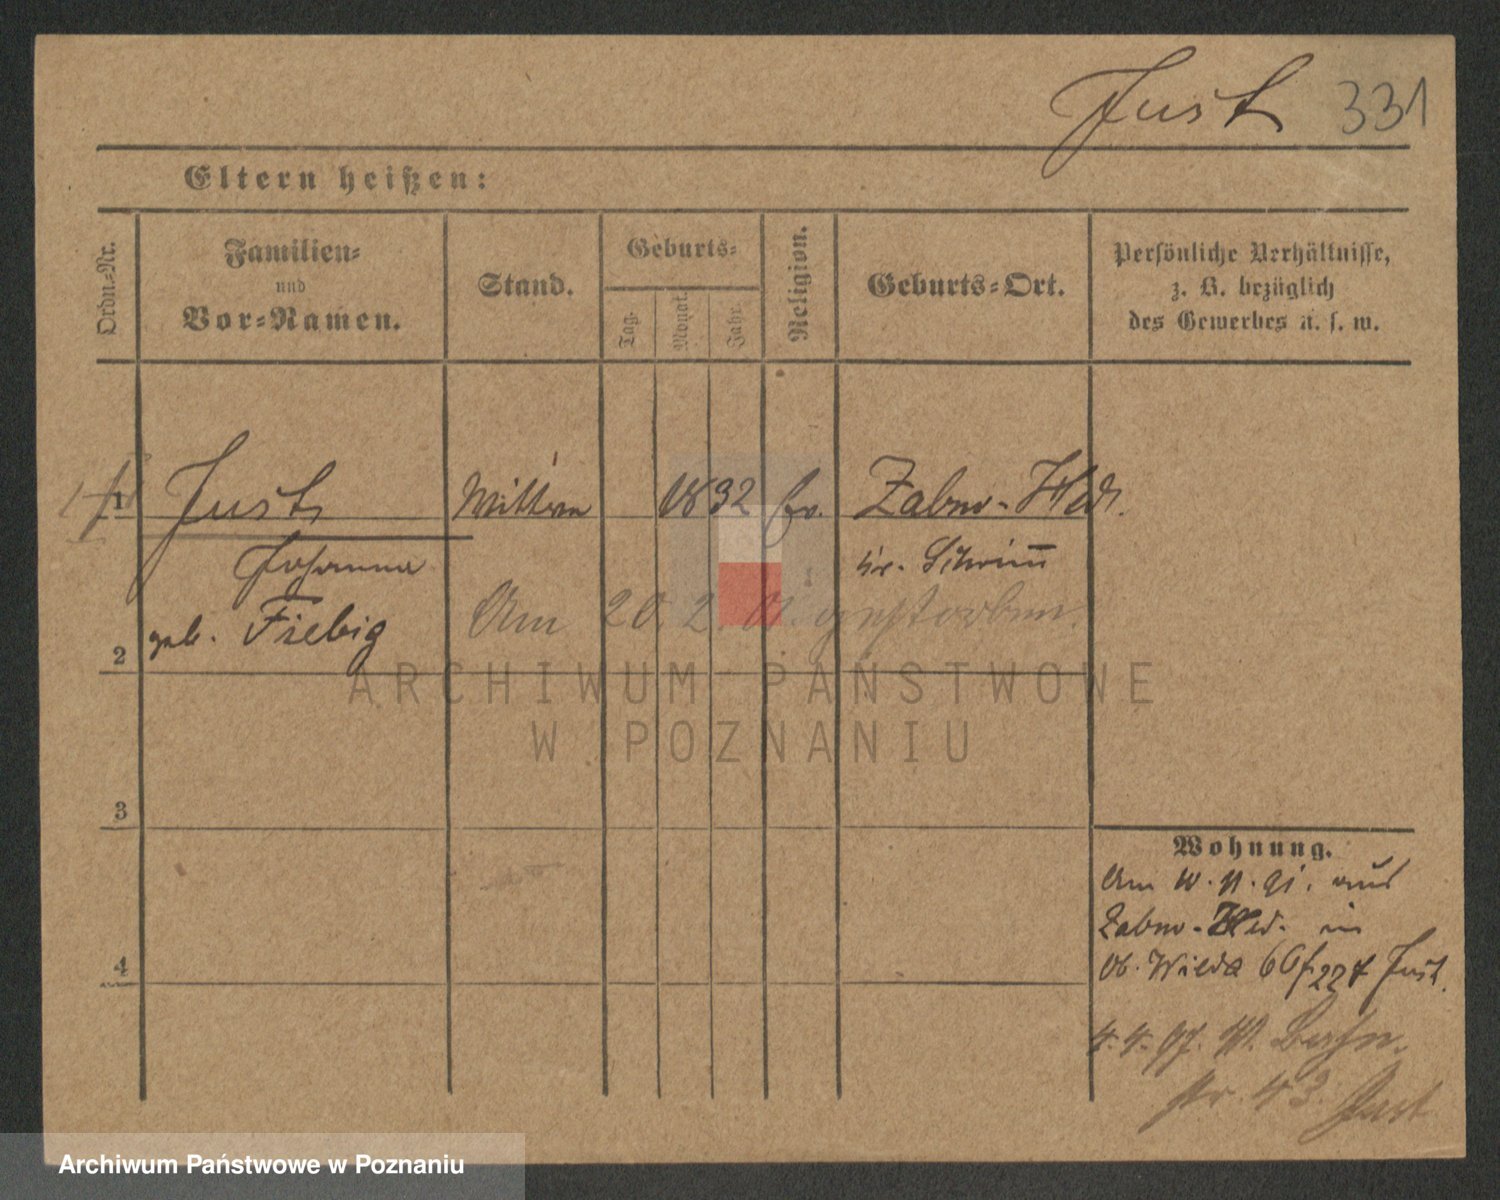 Just 331
Eltern heißen:
Ordn.=Nr.
Familien=
und
Vor=Namen.
Stand.
Geburts=
Tag.
Monat.
Jahr.
Religion.
Geburts=Ort.
Persönliche Verhältnisse,
z. B. bezüglich
des Gewerbes u. s. w.
1 Just Wittwe 1832 Ev. Zabno-Hld.
Johanna Kr. Schrimm
geb. Fiebig
Am 20. 2. 01. gestorben.
2
3
4
Wohnung.
Am 10. 11. 91. aus
Zabno-Hld. in
Ob. Wilda 66 Just.
4. 4. 97.
str. 43. Just
ARCHIWUM PAŃSTWOWE
W POZNANIU
Archiwum Państwowe w Poznaniu